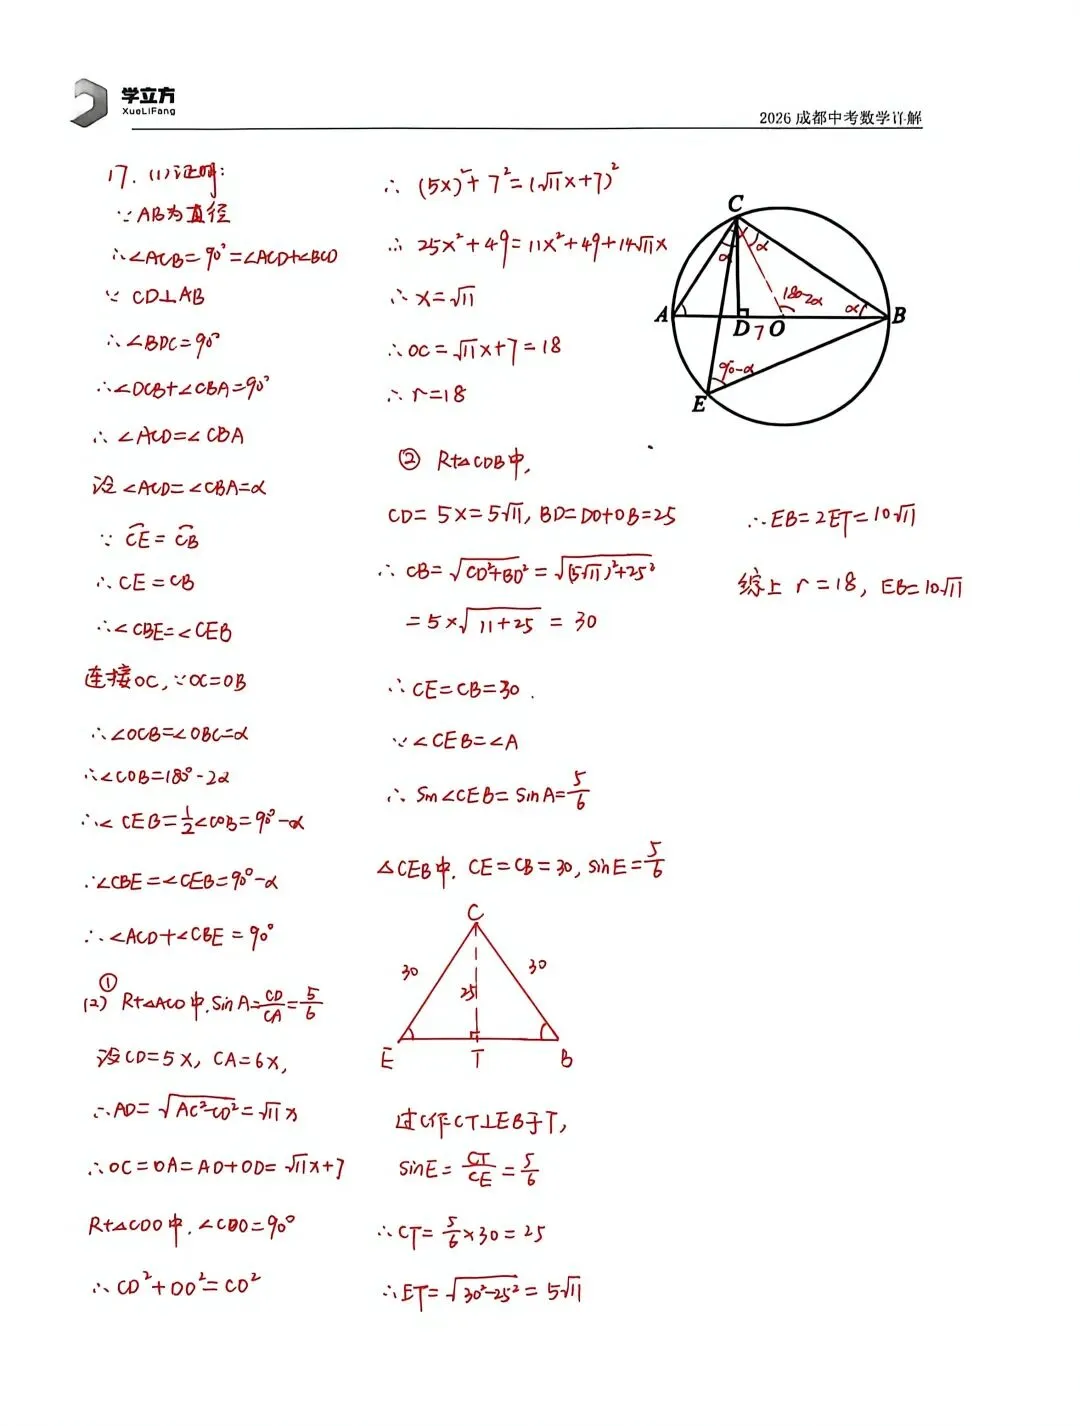 学立方
XueLiFang
2026 成都中考数学详解
17. (1) 证明:
∵ AB为直径
∴∠ACB=90°=∠ACD+∠BCD
∵ CD⊥AB
∴∠BDC=90°
∴∠DCB+∠CBA=90°
∴ ∠ACD=∠CBA
设∠ACD=∠CBA=α
∵ C͡E=C͡B
∴CE=CB
∴∠CBE=∠CEB
连接OC,∵OC=OB
∴∠OCB=∠OBC=α
∴∠COB=180°-2α
∴∠CEB=1/2∠COB=90°-α
∴∠CBE=∠CEB=90°-α
∴∠ACD+∠CBE=90°
(2)① Rt△ACD中,sinA=CD/CA=5/6
设CD=5x, CA=6x,
∴AD=√(AC²-CD²)=√11x
∴OC=OA=AD+OD=√11x+7
Rt△CDO中,∠CDO=90°
∴CD²+DO²=CO²
∴ (5x)²+7²=(√11x+7)²
∴ 25x²+49=11x²+49+14√11x
∴x=√11
∴OC=√11x+7=18
∴r=18
② Rt△CDB中,
CD=5x=5√11,BD=DO+OB=25
∴ CB=√(CD²+BD²)=√((5√11)²+25²)
=5×√(11+25)=30
∴CE=CB=30.
∵∠CEB=∠A
∴sin∠CEB=sinA=5/6
△CEB中,CE=CB=30,sinE=5/6
C
30
30
25
E
T
B
过C作CT⊥EB于T,
sinE=CT/CE=5/6
∴CT=5/6×30=25
∴ET=√(30²-25²)=5√11
C
α
α
180-2α
α
A
D
7
O
B
90-α
E
∴EB=2ET=10√11
综上 r=18, EB=10√11